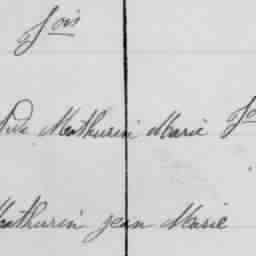 fois
Mathurin Marie
Mathurin jean Marie